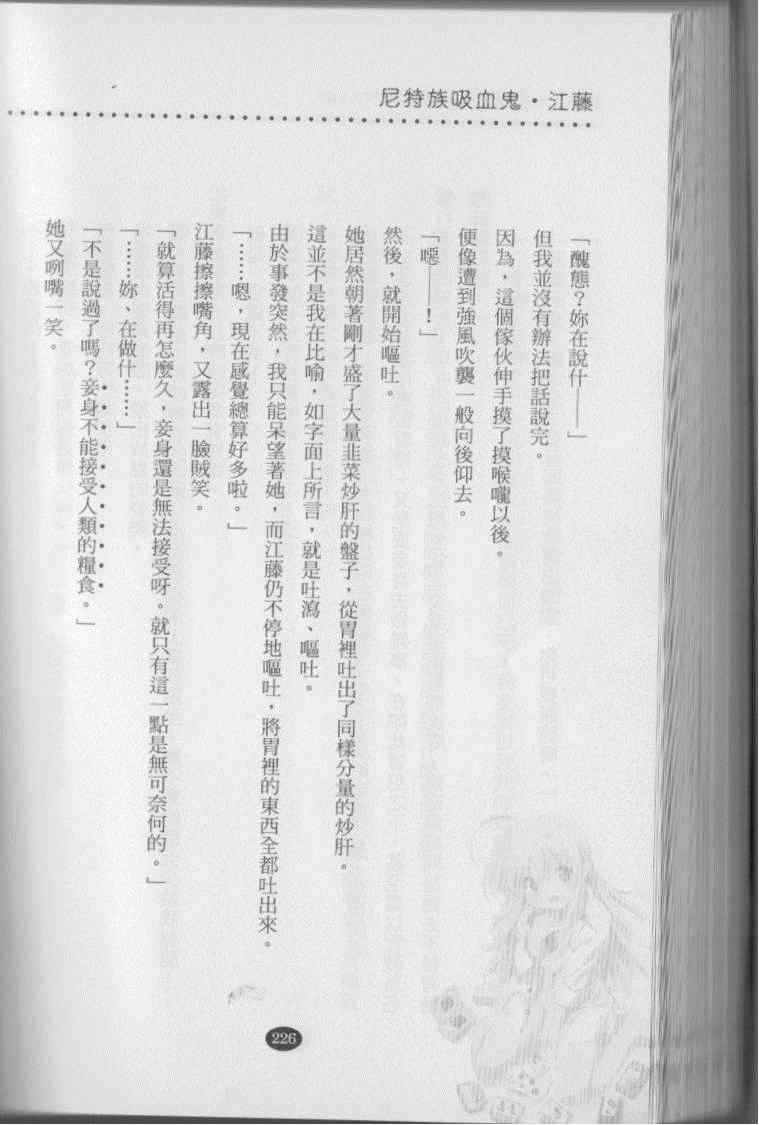 尼特族吸血鬼・江藤
「醜態？妳在說什——」
但我並沒有辦法把話說完。
因為，這個傢伙伸手摸了摸喉嚨以後。
便像遭到強風吹襲一般向後仰去。
「噁——！」
然後，就開始嘔吐。
她居然朝著剛才盛了大量韭菜炒肝的盤子，從胃裡吐出了同樣分量的炒肝。
這並不是我在比喻，如字面上所言，就是吐瀉、嘔吐。
由於事發突然，我只能呆望著她，而江藤仍不停地嘔吐，將胃裡的東西全都吐出來。
「……嗯，現在感覺總算好多啦。」
江藤擦擦嘴角，又露出一臉賊笑。
「就算活得再怎麼久，妾身還是無法接受呀。就只有這一點是無可奈何的。」
「……妳、在做什……」
「不是說過了嗎？妾身不能接受人類的糧食。」
她又咧嘴一笑。
226